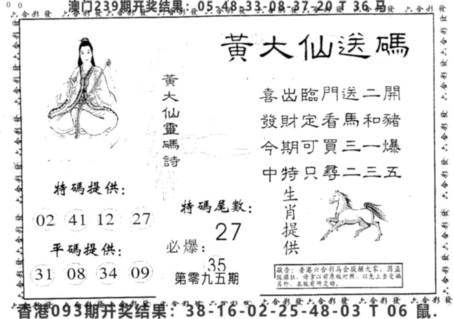 澳门239期开奖结果：05-48-33-08-37-20 T 36 马
六合彩發
黃大仙送碼
黃大仙靈碼詩
喜出臨門送二開
發財定看馬和豬
今期可買三一爆
中特只尋二三五
特碼提供：
02 41 12 27
平碼提供：
31 08 34 09
特碼尾數：
27
必爆：
35
第零九五期
生肖提供
香港093期开奖结果：38-16-02-25-48-03 T 06 鼠.